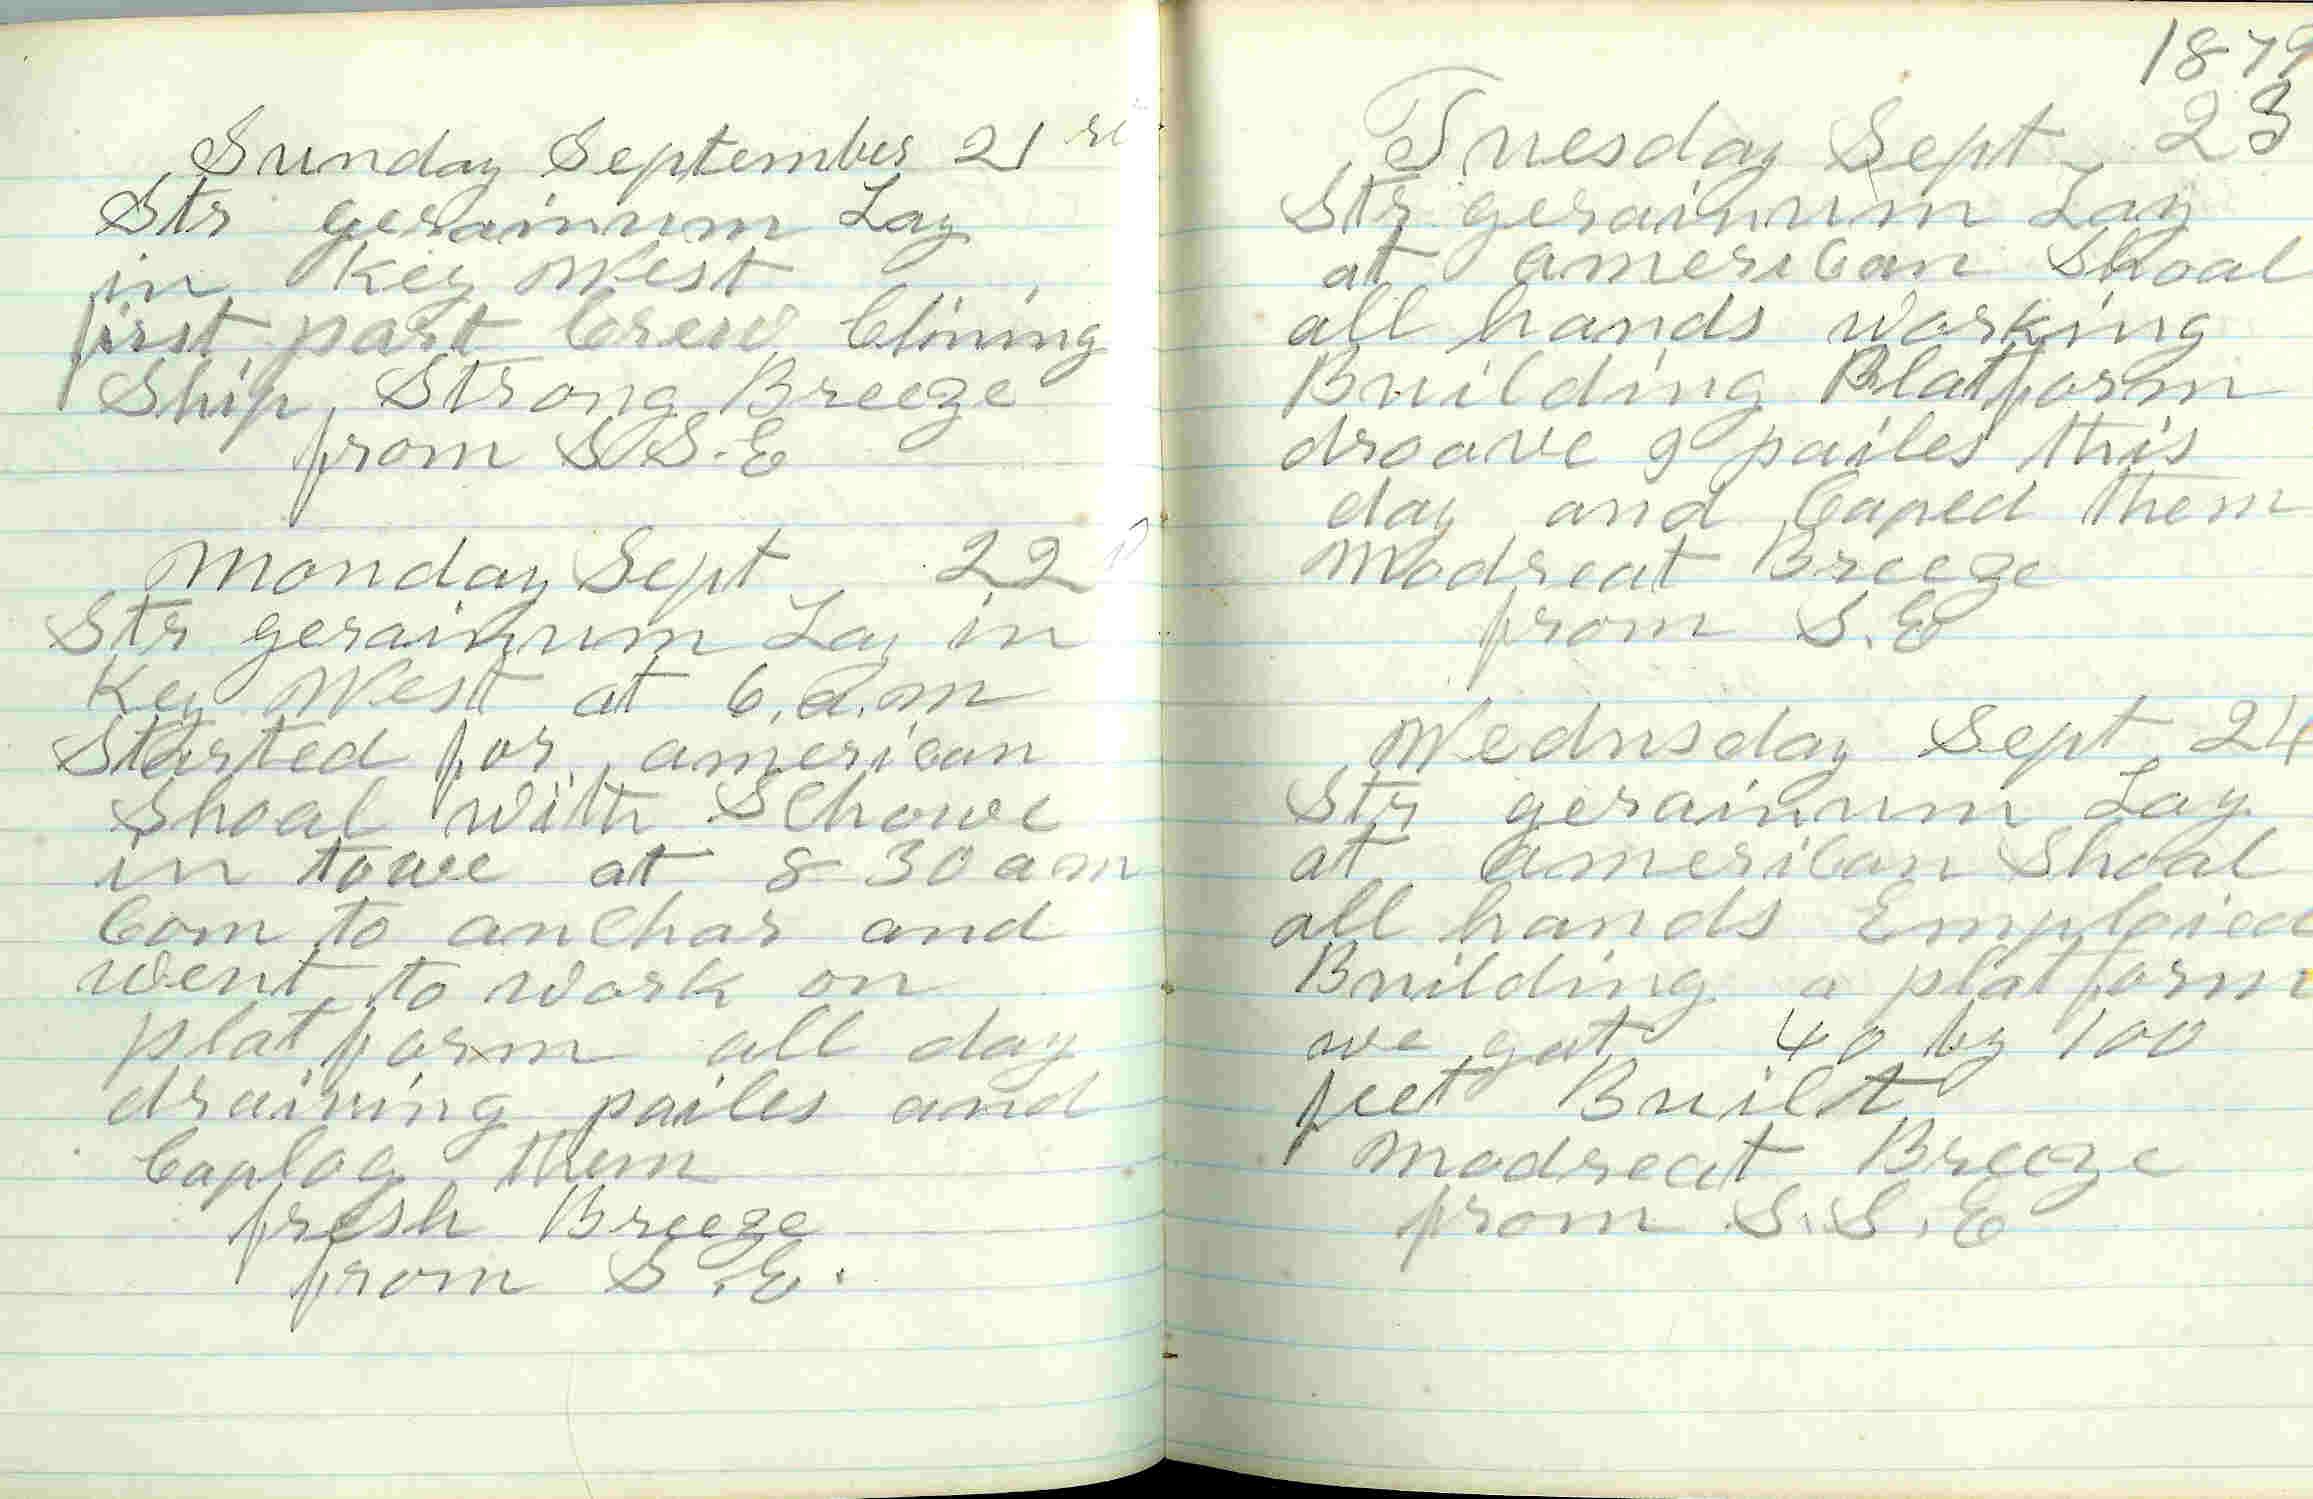 Sunday September 21
Str gerainum Lay
in Key West
first part Crew Clining
Ship, Strong Breeze
from S S. E
Monday Sept 22
Str gerainum Lay in
Key West at 6. a. m
Started for american
Shoal with Schowe
in towe at 8 30 a m
Com to anchar and
went to work on
platform all day
draiving pailes and
Caplog them
fresh Breeze
from S. E.
1879
Tuesday Sept 23
Str gerainum Lay
at american Shoal
all hands working
Building Platform
droave 9 pailes this
day and Caped them
Modreat Breeze
from S. E
Wednsday Sept 24
Str gerainum Lay
at american Shoal
all hands Emploied
Building a platform
we gat 40 by 100
feet Built
Modreat Breeze
from S. S. E